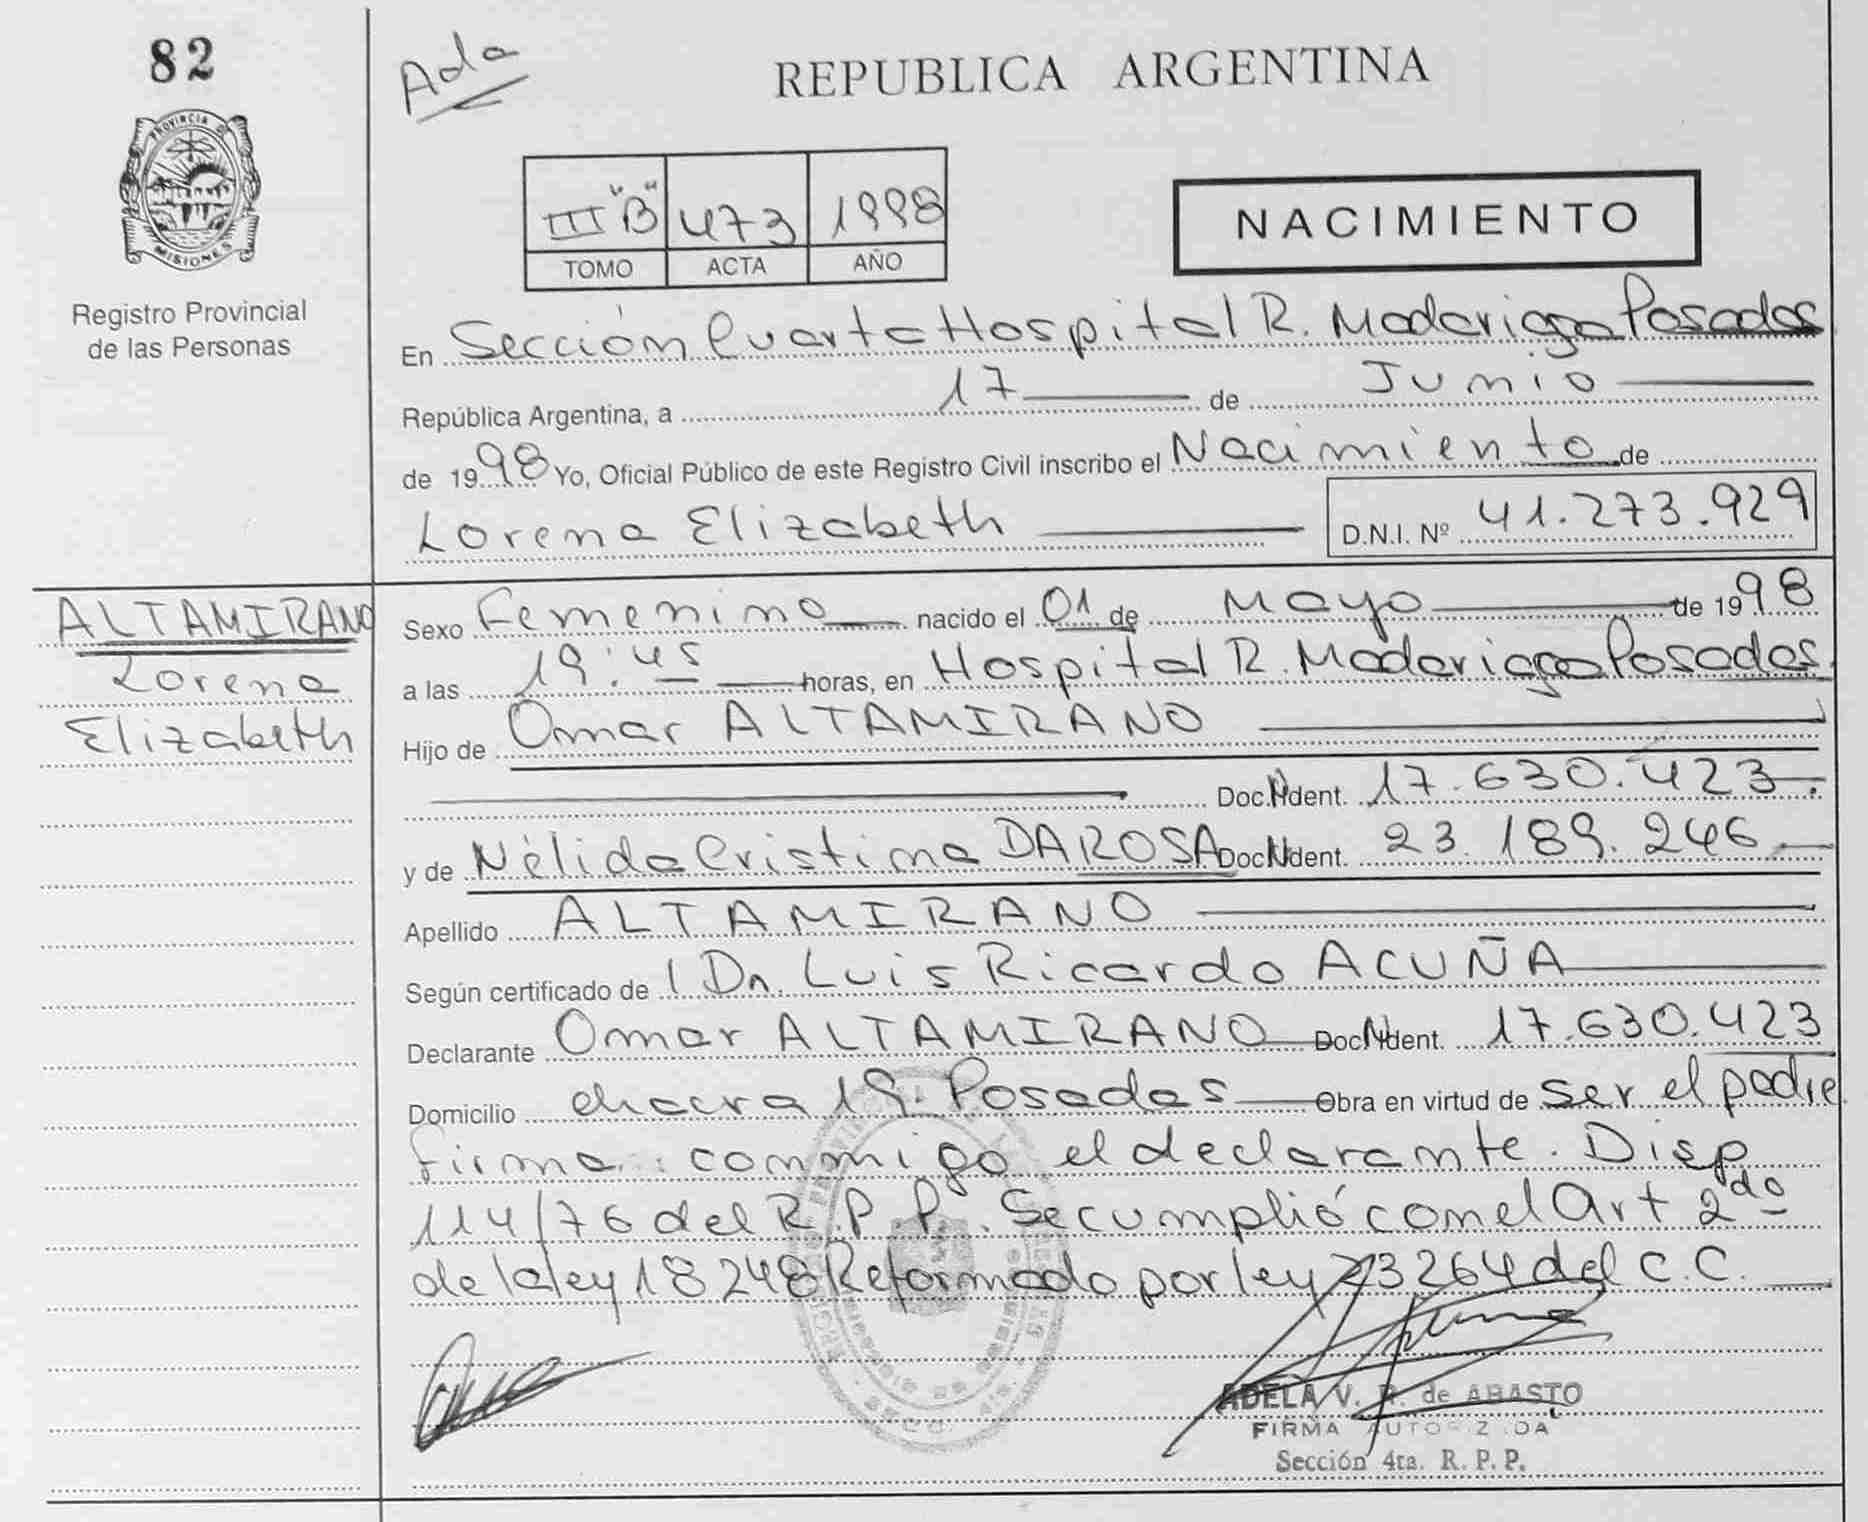 82
Ada
REPUBLICA ARGENTINA
PROVINCIA DE
MISIONES
Registro Provincial
de las Personas
III "B" 473 1998
TOMO ACTA AÑO
NACIMIENTO
En Sección Cuarta Hospital R. Madariaga Posadas
República Argentina, a 17 de Junio
de 1998 Yo, Oficial Público de este Registro Civil inscribo el Nacimiento de
Lorena Elizabeth D.N.I. Nº 41.273.929
ALTAMIRANO
Lorena
Elizabeth
Sexo Femenino nacido el 01 de Mayo de 1998
a las 19:45 horas, en Hospital R. Madariaga Posadas
Hijo de Omar ALTAMIRANO
Doc. Ident. 17.630.423
y de Nélida Cristina DAROSA Doc. Ident. 23.189.246
Apellido ALTAMIRANO
Según certificado de Luis Ricardo ACUÑA
Declarante Omar ALTAMIRANO Doc. Ident. 17.630.423
Domicilio chacra 19. Posadas Obra en virtud de ser el padre
firma conmigo el declarante. Disp
114/76 del R.P.P. Se cumplió con el Art 2do
de la ley 18248 Reformado por ley 23264 del C.C.
ADELA V. R. de ABASTO
FIRMA AUTORIZADA
Sección 4ta. R. P. P.